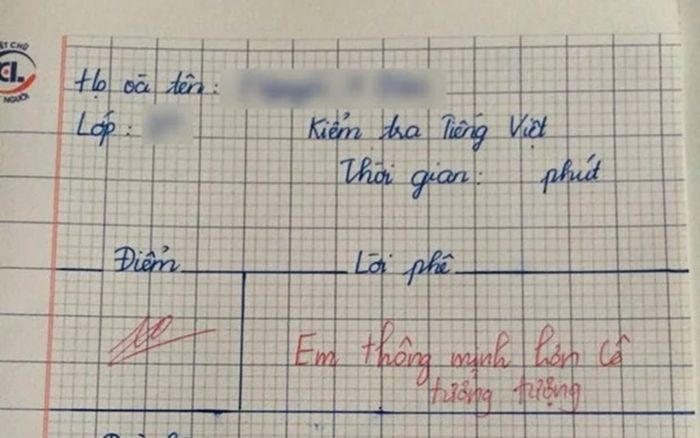 ẾT CHỮ
CL
NGƯỜI
Họ và tên:
Lớp:
Kiểm tra Tiếng Việt
Thời gian: phút
Điểm
Lời phê
10
Em thông minh hơn cô
tưởng tượng